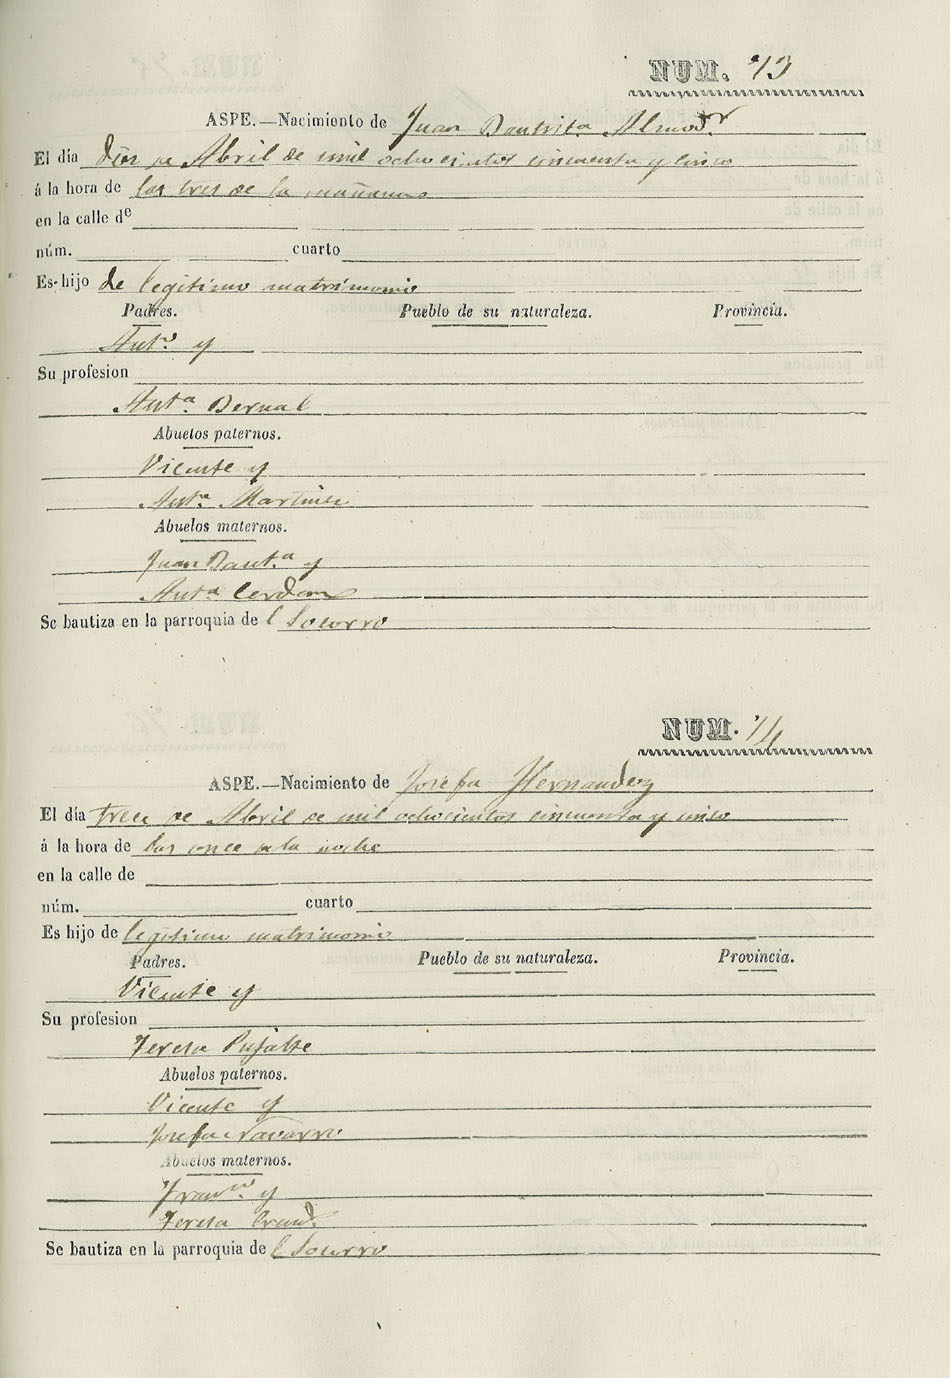 NUM. 73
ASPE.—Nacimiento de Juan Bautista Almodr
El día diez de Abril de mil ochocientos cincuenta y cinco
á la hora de las tres de la mañana
en la calle de
núm. cuarto
Es hijo de legitimo matrimonio
Padres. Pueblo de su naturaleza. Provincia.
Anto. y
Su profesion
Anta. Bernal
Abuelos paternos.
Vicente y
Anta. Martinez
Abuelos maternos.
Juan Bauta. y
Anta Cerdan
Se bautiza en la parroquia del Socorro
NUM. 74
ASPE.—Nacimiento de Josefa Hernandez
El día trece de Abril de mil ochocientos cincuenta y cinco
á la hora de las once de la noche
en la calle de
núm. cuarto
Es hijo de legitimo matrimonio
Padres. Pueblo de su naturaleza. Provincia.
Vicente y
Su profesion
Teresa Pujalte
Abuelos paternos.
Vicente y
Josefa Navarro
Abuelos maternos.
Franco. y
Teresa
Se bautiza en la parroquia del Socorro